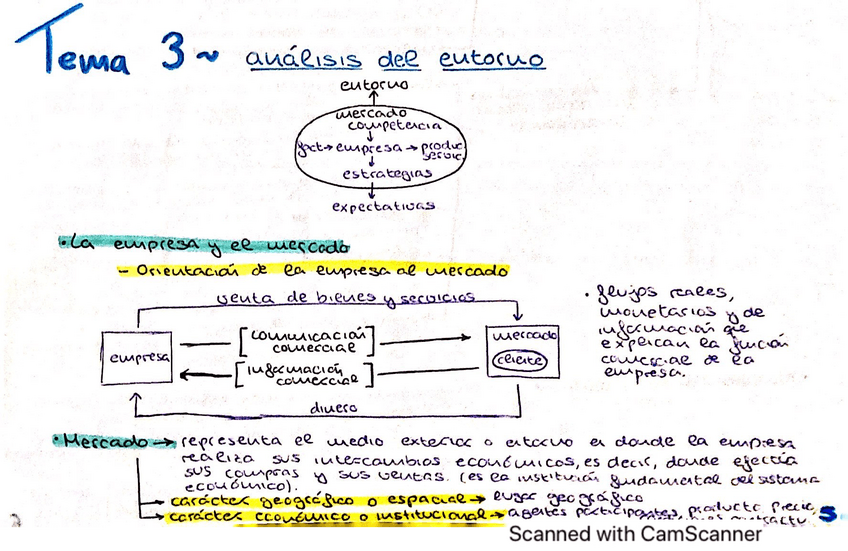 Tema 3~ análisis del entorno
entorno
mercado
competencia
fact→empresa→produc
servic.
estrategias
expectativas
·La empresa y el mercado
- Orientación de la empresa al mercado
venta de bienes y servicios
empresa
[comunicación
comercial]
[información
comercial]
mercado
cliente
dinero
· flujos reales,
monetarios y de
información que
explican la función
comercial de la
empresa.
·Mercado → representa el medio exterior o entorno en donde la empresa
realiza sus intercambios económicos, es decir, donde ejercita
sus compras y sus ventas. (es la institución fundamental del sistema
económico).
→ carácter geográfico o espacial → lugar geográfico
→ carácter económico o institucional → agentes participantes, producto, precio,
S
Scanned with CamScanner